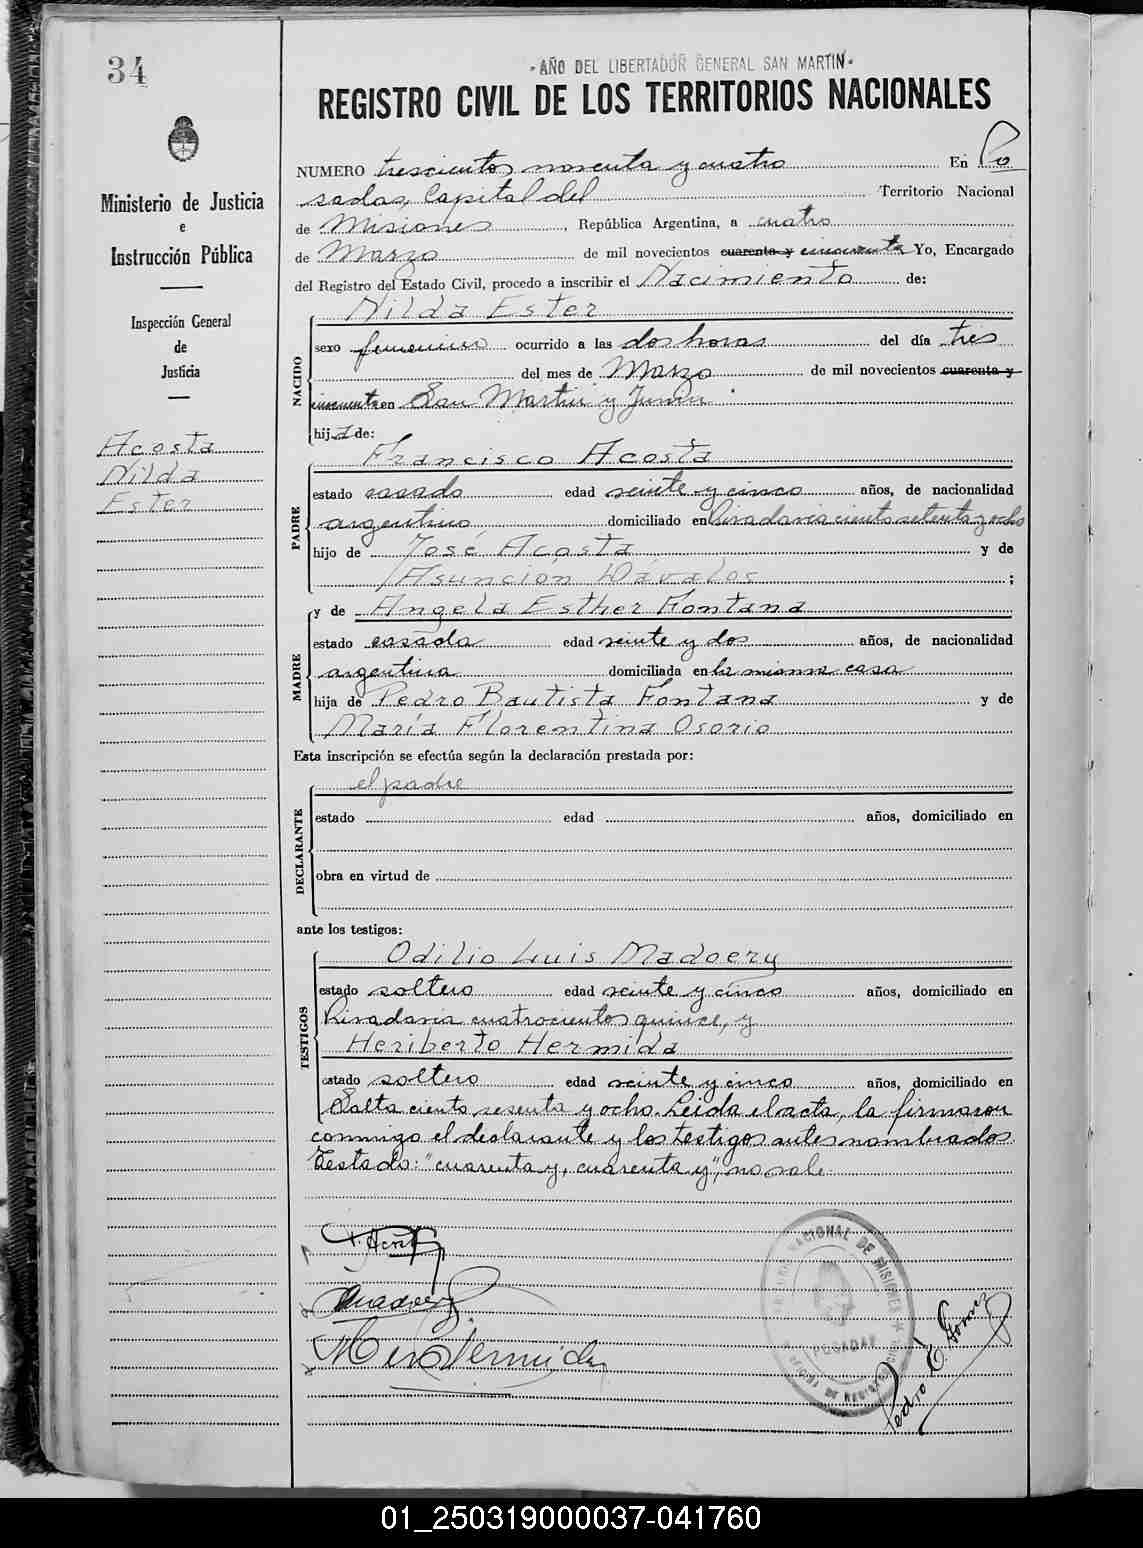 34
- AÑO DEL LIBERTADOR GENERAL SAN MARTIN -
REGISTRO CIVIL DE LOS TERRITORIOS NACIONALES
Ministerio de Justicia
e
Instrucción Pública
Inspección General
de
Justicia
Acosta
Nilda
Ester
NUMERO trescientos noventa y cuatro En Po
sadas, Capital del Territorio Nacional
de Misiones, República Argentina, a cuatro
de Marzo de mil novecientos cuarenta y cincuenta Yo, Encargado
del Registro del Estado Civil, procedo a inscribir el Nacimiento de:
Nilda Ester
NACIDO
sexo femenino ocurrido a las dos horas del día tres
del mes de Marzo de mil novecientos cuarenta y
cincuenta en San Martin y Junin
hija de:
Francisco Acosta
PADRE
estado casado edad veinte y cinco años, de nacionalidad
argentino domiciliado en Rivadavia ciento setenta y ocho
hijo de José Acosta y de
Asunción Dávalos ;
y de Angela Esther Fontana
MADRE
estado casada edad veinte y dos años, de nacionalidad
argentina domiciliada en la misma casa
hija de Pedro Bautista Fontana y de
María Florentina Osorio
Esta inscripción se efectúa según la declaración prestada por:
el padre
DECLARANTE
estado edad años, domiciliado en
obra en virtud de
ante los testigos:
Odilio Luis Madoery
TESTIGOS
estado soltero edad veinte y cinco años, domiciliado en
Rivadavia cuatrocientos quince, y
Heriberto Hermida
estado soltero edad veinte y cinco años, domiciliado en
Salta ciento sesenta y ocho. Leida el acta, la firmaron
conmigo el declarante y los testigos antes nombrados.
Testado: "cuarenta y, cuarenta y", no vale.
F. Acosta
Madoery
Her Hermida
NACIONAL DE MISIONES
POSADAS
Pedro E. Gomez
01_250319000037-041760